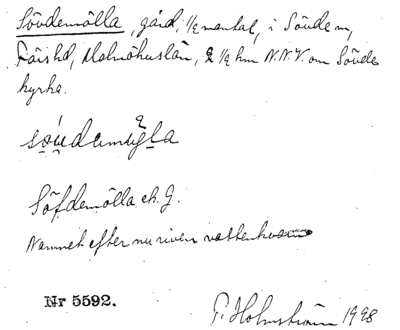 Sövdemölla, gård, 1/2 mantal, i Sövde sn,
Färs hd, Malmöhus län, 2 1/2 km N.N.V. om Sövde
kyrka.
Söfdemölla ek. G.
Namnet efter nu riven vattenkvarn
Nr 5592.
G. Holmström 1928